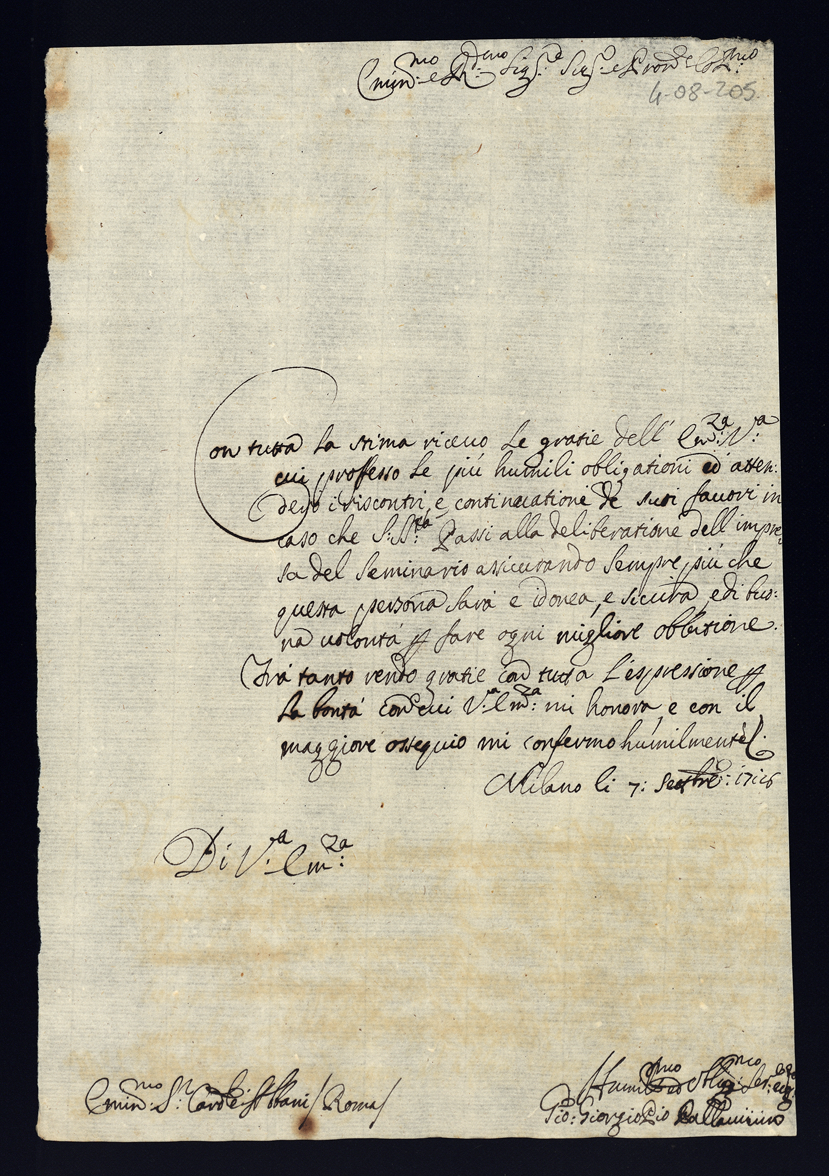 Emin.mo e R.dmo Sig.r Sig.r e Pron.e Col.mo
4-08-205.
Con tutta la stima riceuo le gratie dell' Em.za V.a
cui professo le più humili obligationi ed atten:
derò i riscontri, e continuatione de suoi fauori in
caso che S: S.tà passi alla deliberatione dell'impre:
sa del Seminario assicurando sempre più che
questa persona sarà e idonea, e sicura, e di buo:
na uolontà p fare ogni migliore
Frà tanto rendo gratie con tutta l'espressione p
la bontà con cui V.a Em.za mi honora, e con il
maggiore ossequio mi confermo humilmente
Milano li 7: Sett.re 17
Di V.a Em.za
Emin.mo S.r Card.e Albani / Roma /
Humil.mo Oblig.mo Ser.
Gio: Giorgio Pio Pallauicino